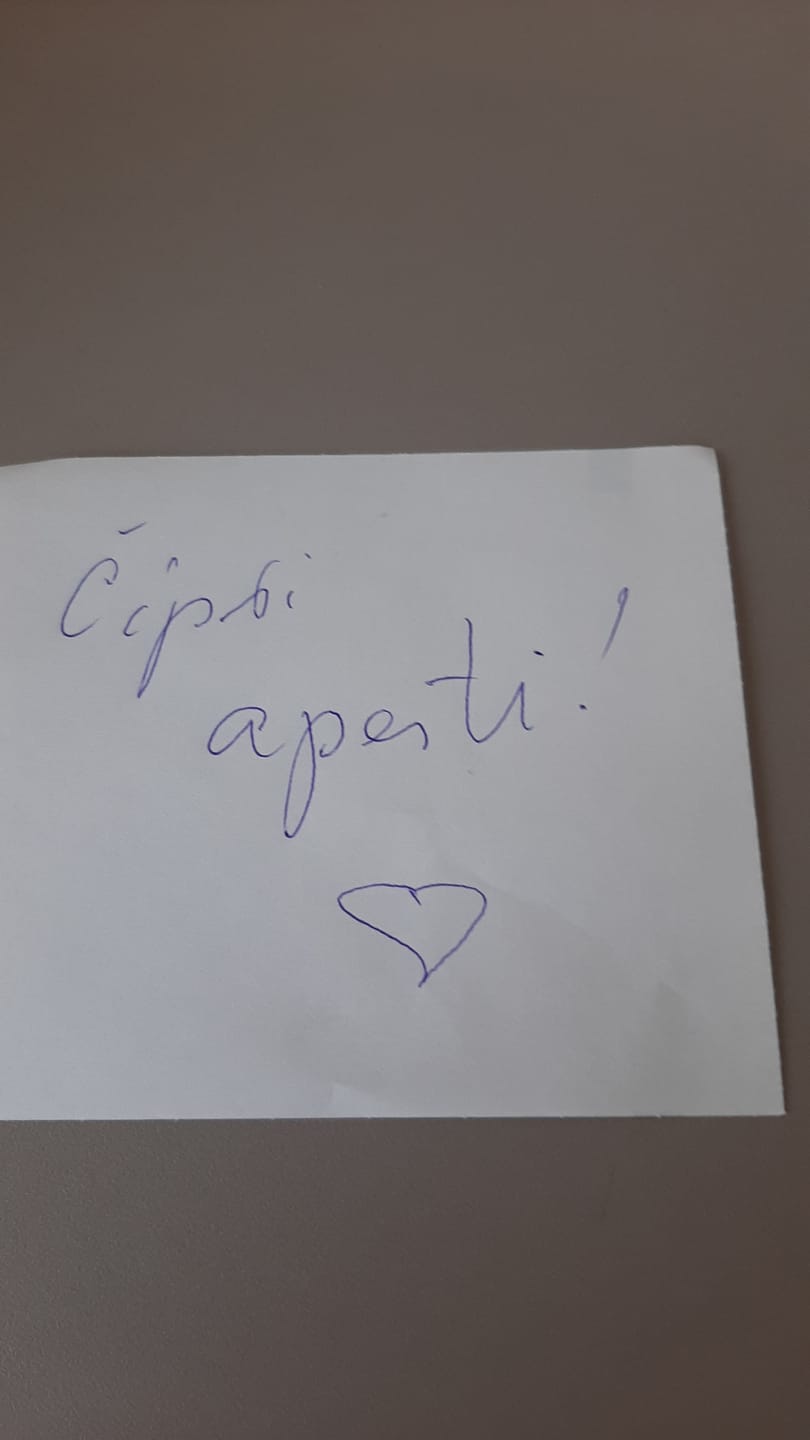 Čipsi
apesti!